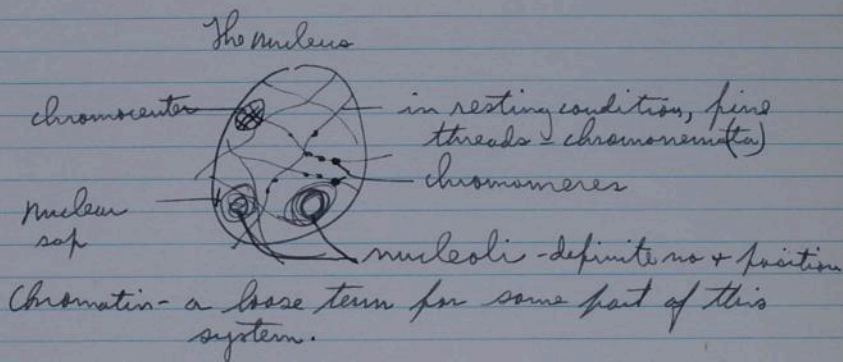 The nucleus
chromocenter
in resting condition, fine
threads = chromonem(ta)
chromomeres
nuclear
sap
nucleoli - definite no + position
Chromatin - a loose term for some part of this
system.